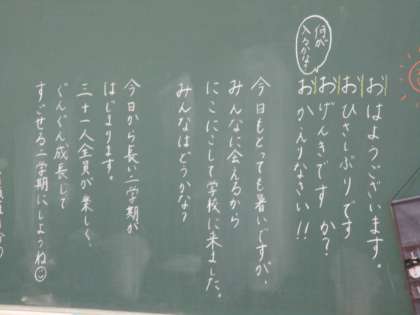 おはようございます。
おひさしぶりです
おげんきですか?
おかえりなさい!!
何が
入るかな?
今日もとっても暑いですが、
みんなに会えるから
にこにこして学校に来ました。
みんなはどうかな?
今日から長い二学期が
はじまります。
三十一人全員が楽しく、
ぐんぐん成長して
すごせる二学期にしようね